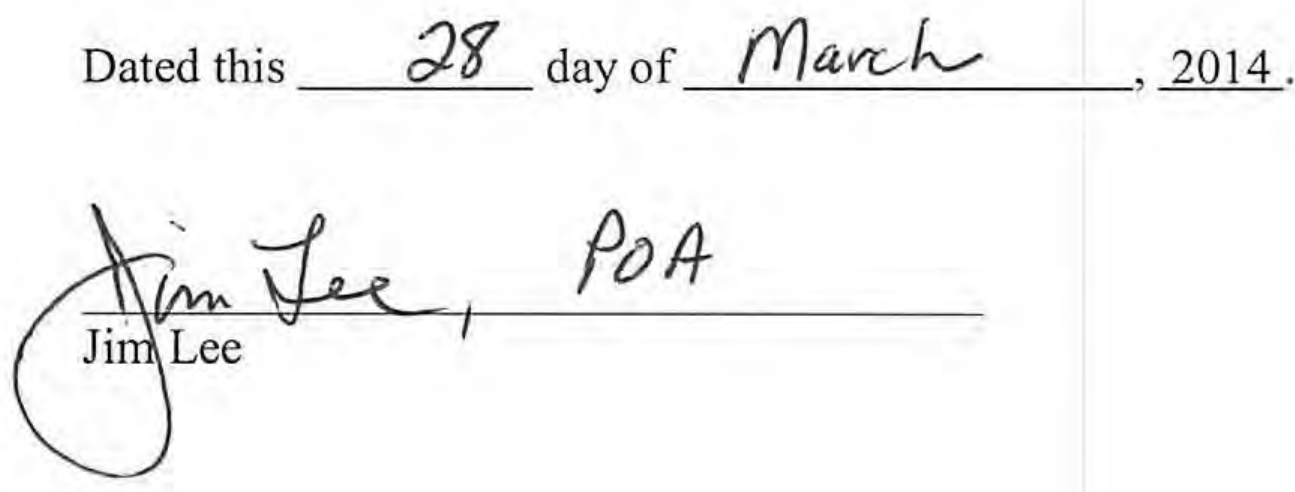 Dated this 28 day of March, 2014.
Jim Lee, POA
Jim Lee